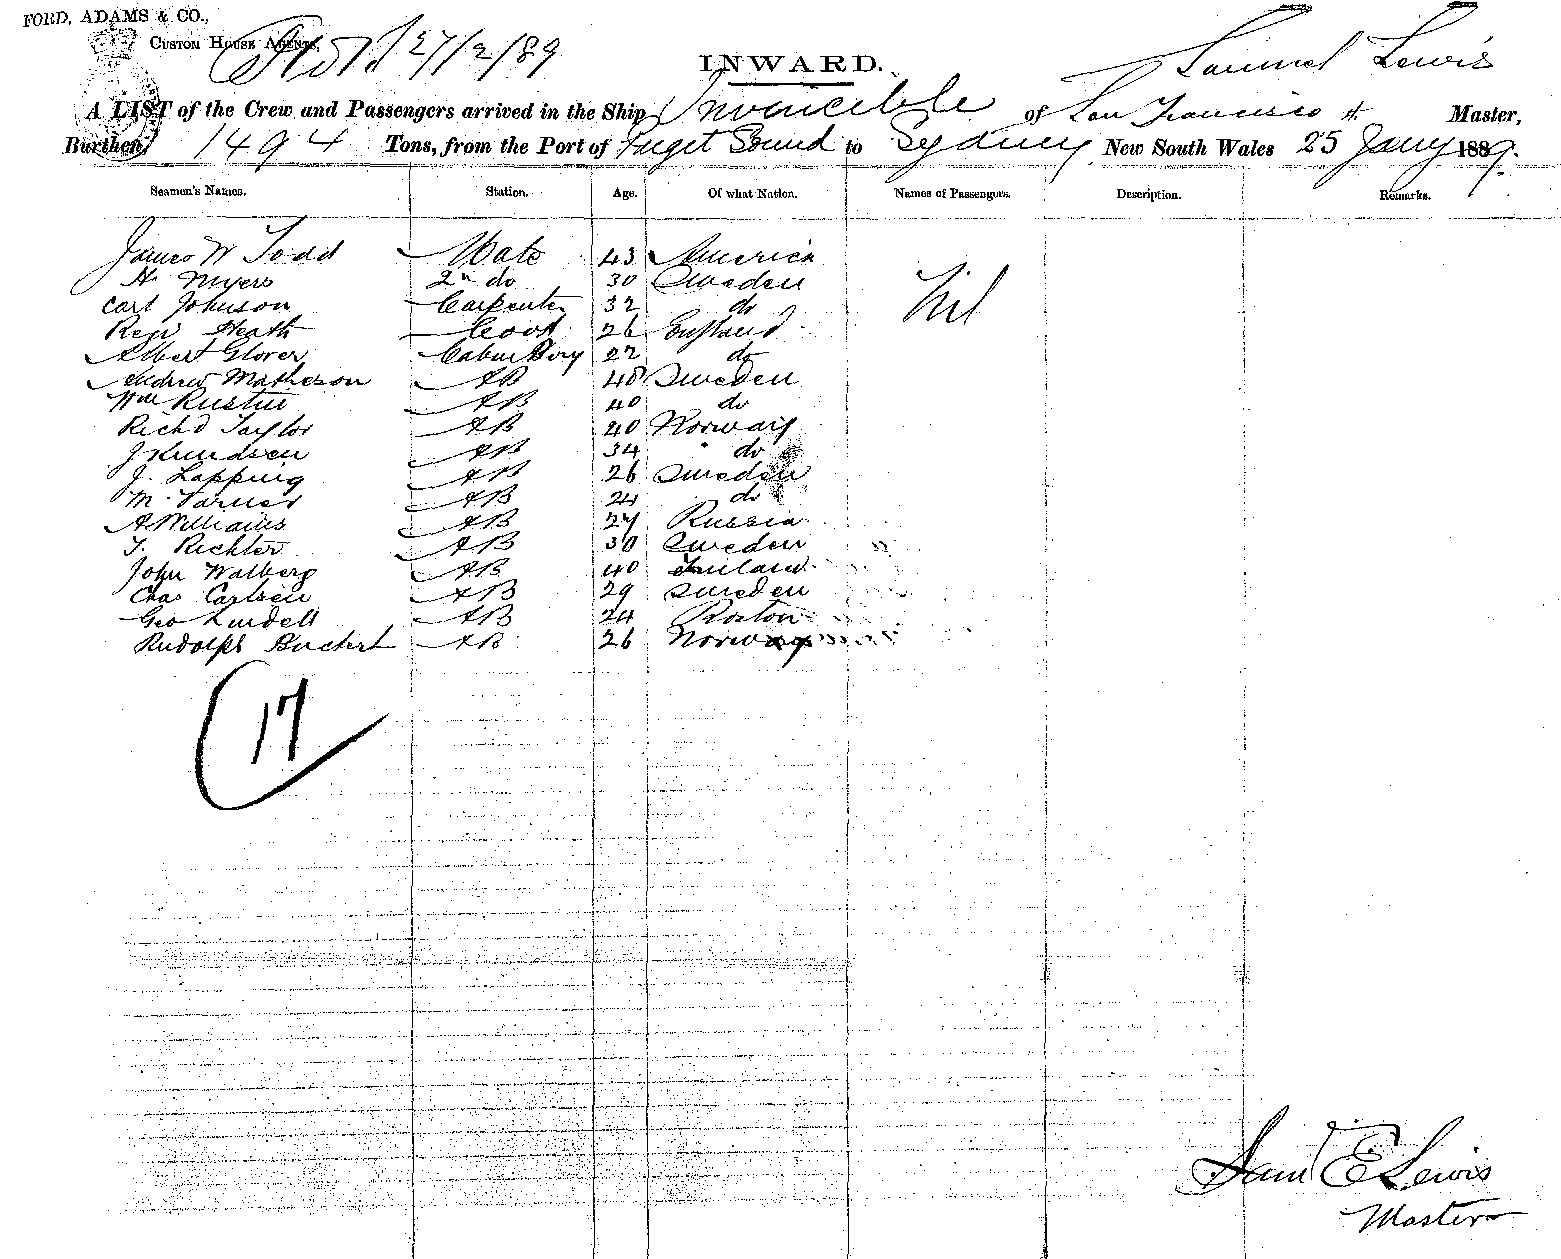 FORD, ADAMS & CO.,
CUSTOM HOUSE AGENTS,
27/2/89
INWARD.
Samuel Lewis
A LIST of the Crew and Passengers arrived in the Ship Invincible of San Francisco Master,
Burthen, 1494 Tons, from the Port of Puget Sound to Sydney New South Wales 25 Jany 1889.
Seamen's Names. Station. Age. Of what Nation. Names of Passengers. Description. Remarks.
James W Todd Mate 43 America
H. Myers 2n do 30 Sweden Nil
Carl Johnson Carpenter 32 do
Regd Heath Cook 26 England
Albert Glover Cabin Boy 22 do
Andrew Matheson AB 48 Sweden
Wm Rustin AB 40 do
Richd Taylor AB 40 Norway
J Knudsen AB 34 do
J. Lapping AB 26 Sweden
M. Turner AB 24 do
A Williams AB 27 Russia
T. Richter AB 30 Sweden
John Walberg AB 40 Finland
Chas Carlsen AB 29 Sweden
Geo Lundell AB 24 Boston
Rudolph AB 26 Norway
17
Saml E Lewis
Master